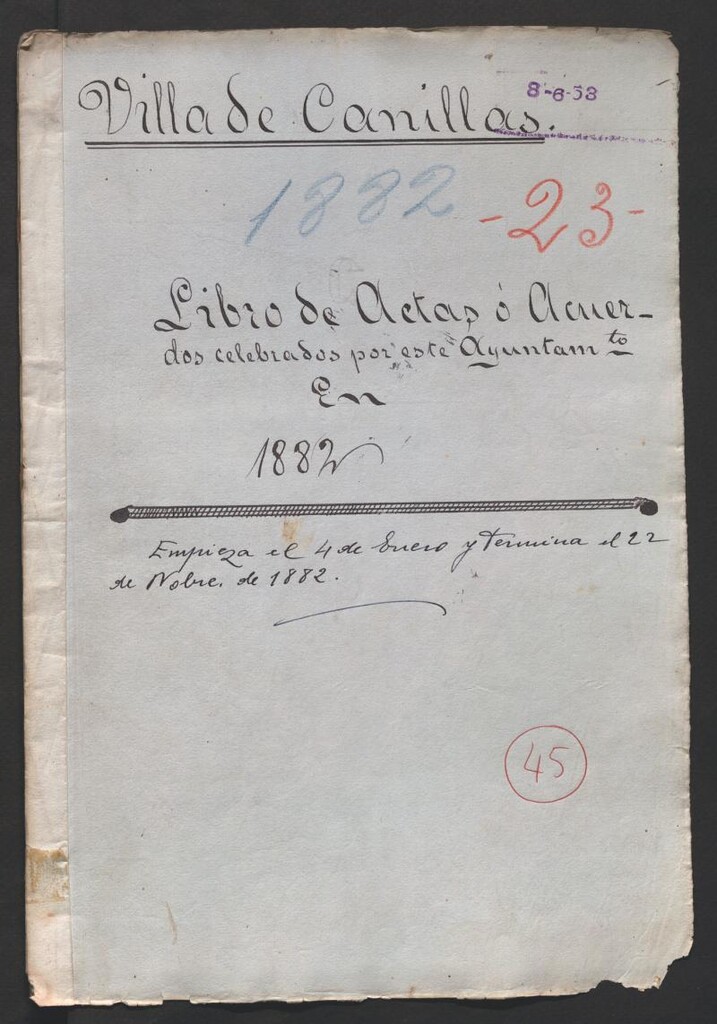 8-6-53
Villa de Canillas.
1882 -23-
Libro de Actas ó Acuer-
dos celebrados por este Ayuntam.to
En
1882
Empieza el 4 de Enero y Termina el 22
de Nobre. de 1882.
45